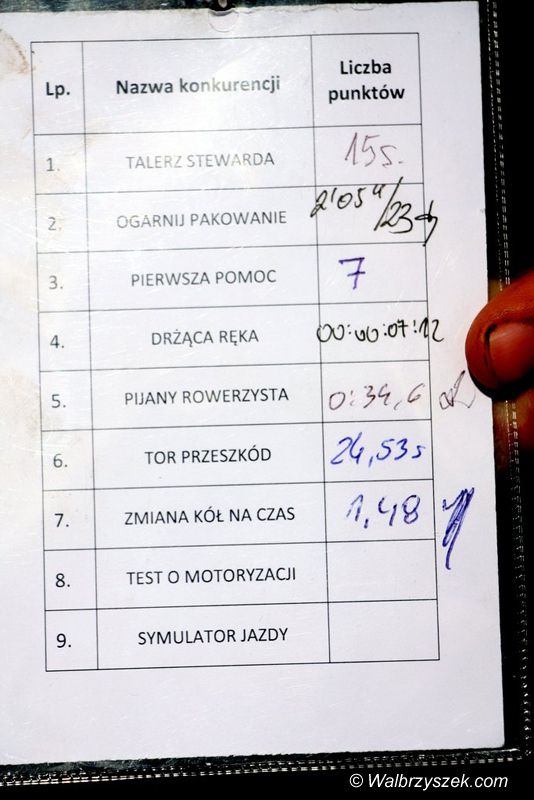 Lp. Nazwa konkurencji Liczba punktów
1. TALERZ STEWARDA 15s.
2. OGARNIJ PAKOWANIE 2'05"/23
3. PIERWSZA POMOC 7
4. DRŻĄCA RĘKA 00:00:07:12
5. PIJANY ROWERZYSTA 0:34,6
6. TOR PRZESZKÓD 24,53s
7. ZMIANA KÓŁ NA CZAS 1,48
8. TEST O MOTORYZACJI
9. SYMULATOR JAZDY
© Walbrzyszek.com